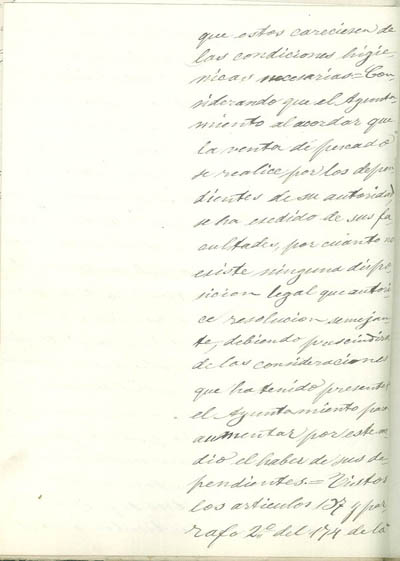 que estos careciesen de
las condiciones higie-
nicas necesarias = Con-
siderando que el Ayunta-
miento al acordar que
la venta de pescado
se realice por los depen-
dientes de su autoridad
se ha escedido de sus fa-
cultades, por cuanto no
esiste ninguna dispo-
sicion legal que autori-
ce resolucion semejan-
te, debiendo prescindirse
de las consideraciones
que ha tenido presentes
el Ayuntamiento para
aumentar por este me-
dio el haber de sus de-
pendientes. = Vistos
los articulos 137 y par-
rafo 2.º del 174 de la